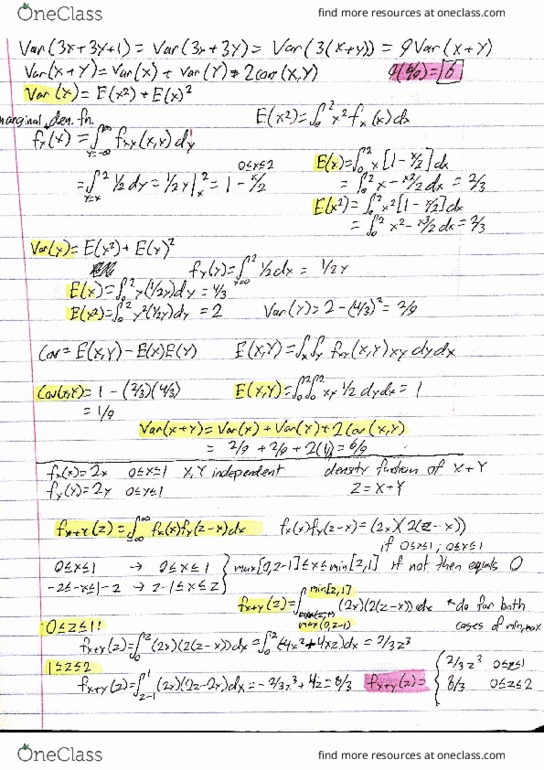 OneClass
find more resources at oneclass.com
Var(3x+3y+1) = Var(3x+3Y) = Var(3(x+Y)) = 9Var(x+Y)
Var(x+Y) = Var(x) + Var(Y) + 2cov(x,Y) 9(6/9) = 6
Var(x) = E(x²) + E(x)²
marginal den. fn. E(x²) = ∫₀² x² fx(x)dx
fx(x) = ∫_{y=-∞}^∞ fxy(x,y) dy
= ∫_{y=x}² 1/2 dy = 1/2 y |ₓ² = 1 - x/2 0≤x≤2
E(x) = ∫₀² x[1 - x/2]dx
= ∫₀² x - x²/2 dx = 2/3
E(x²) = ∫₀² x²[1 - x/2]dx
= ∫₀² x² - x³/2 dx = 2/3
Var(y) = E(x²) + E(x)²
fy(y) = ∫² 1/2 dx = 1/2 y
E(x) = ∫₀² y(1/2y)dy = 4/3
E(x²) = ∫₀² y²(1/2y)dy = 2 Var(Y) = 2 - (4/3)² = 2/9
Cov = E(x,Y) - E(x)E(Y) E(x,Y) = ∫ₓ∫y fxy(x,Y) xy dy dx
Cov(x,Y) = 1 - (2/3)(4/3) E(x,Y) = ∫₀²∫₀² xy 1/2 dy dx = 1
= 1/9
Var(x+Y) = Var(x) + Var(Y) + 2Cov(x,Y)
= 2/9 + 2/9 + 2() = 6/9
fx(x) = 2x 0≤x≤1 X,Y independent density function of X+Y
fy(y) = 2y 0≤y≤1 Z = X+Y
fx+Y(z) = ∫_{-∞}^∞ fx(x)fy(z-x)dx fx(x)fy(z-x) = (2x)(2(z-x))
if 0≤x≤1, 0≤x≤1
0≤x≤1 → 0≤x≤1 } max[0,z-1]≤x≤min[z,1] if not then equals 0
→ z-1≤x≤z
fx+Y(z) = ∫_{max(0,z-1)}^{min[z,1]} (2x)(2(z-x))dx *do for both
cases of min,max
0≤z≤1:
fx+y(z) = ∫₀ᶻ (2x)(2(z-x))dx = ∫₀ᶻ (-4x²+4xz)dx = 2/3 z³
1≤z≤2
fx+y(z) = ∫_{z-1}¹ (2x)(2z-2x)dx = -2/3z³ + 4z = 8/3 fx+y(z) = { 2/3 z³ 0≤z≤1
8/3 0≤z≤2
OneClass
find more resources at oneclass.com